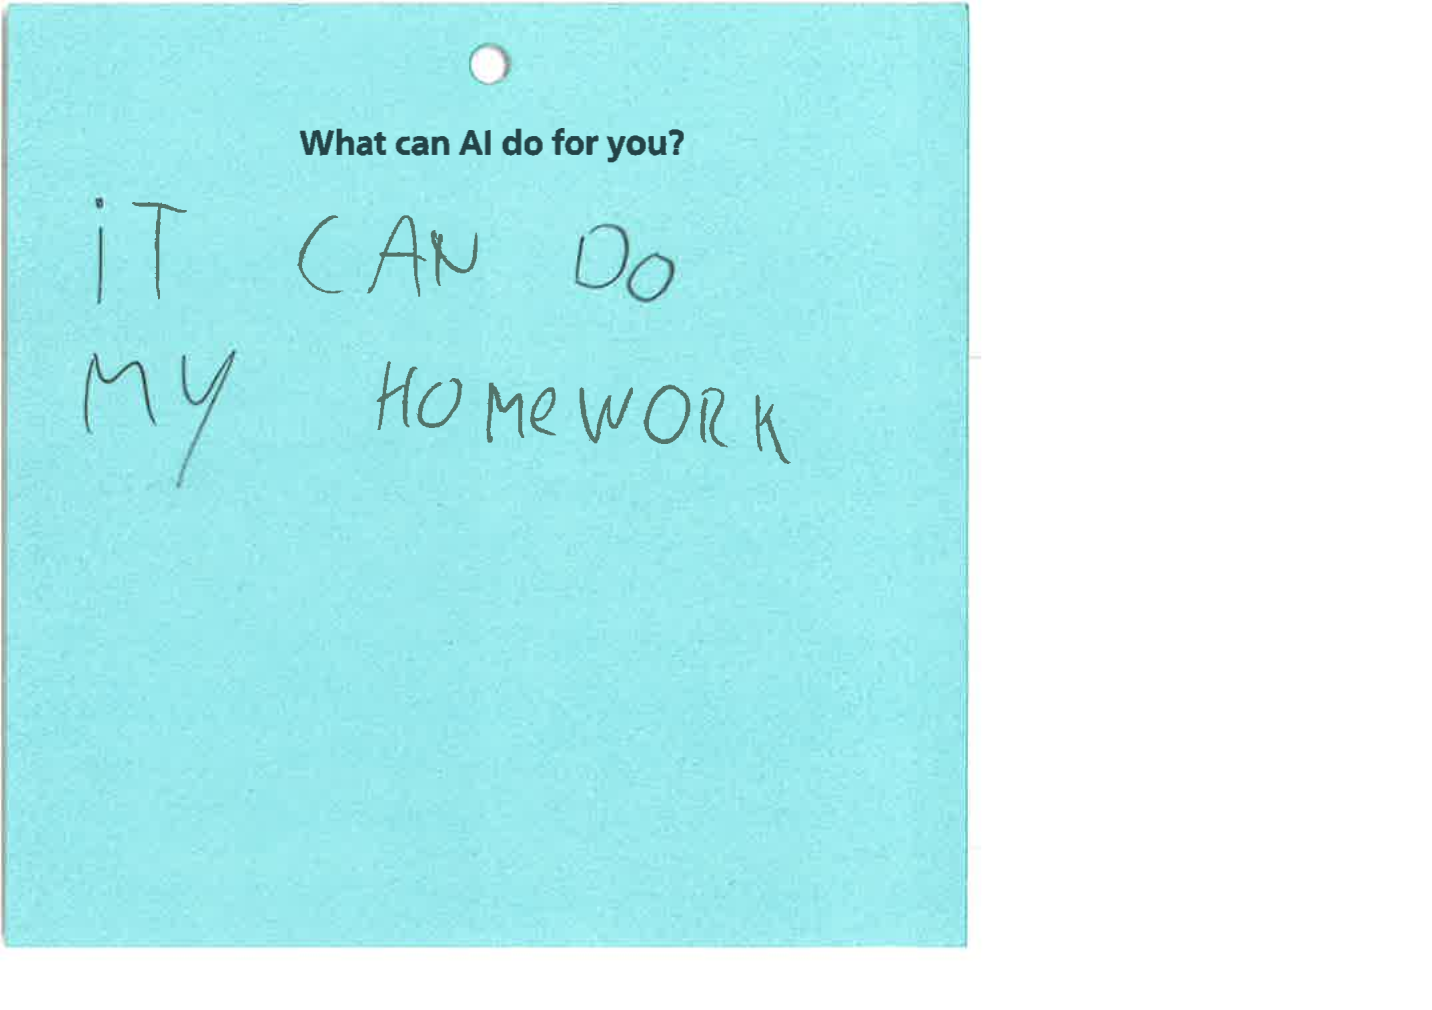 What can AI do for you?
iT CAN DO
MY HOMeWORK